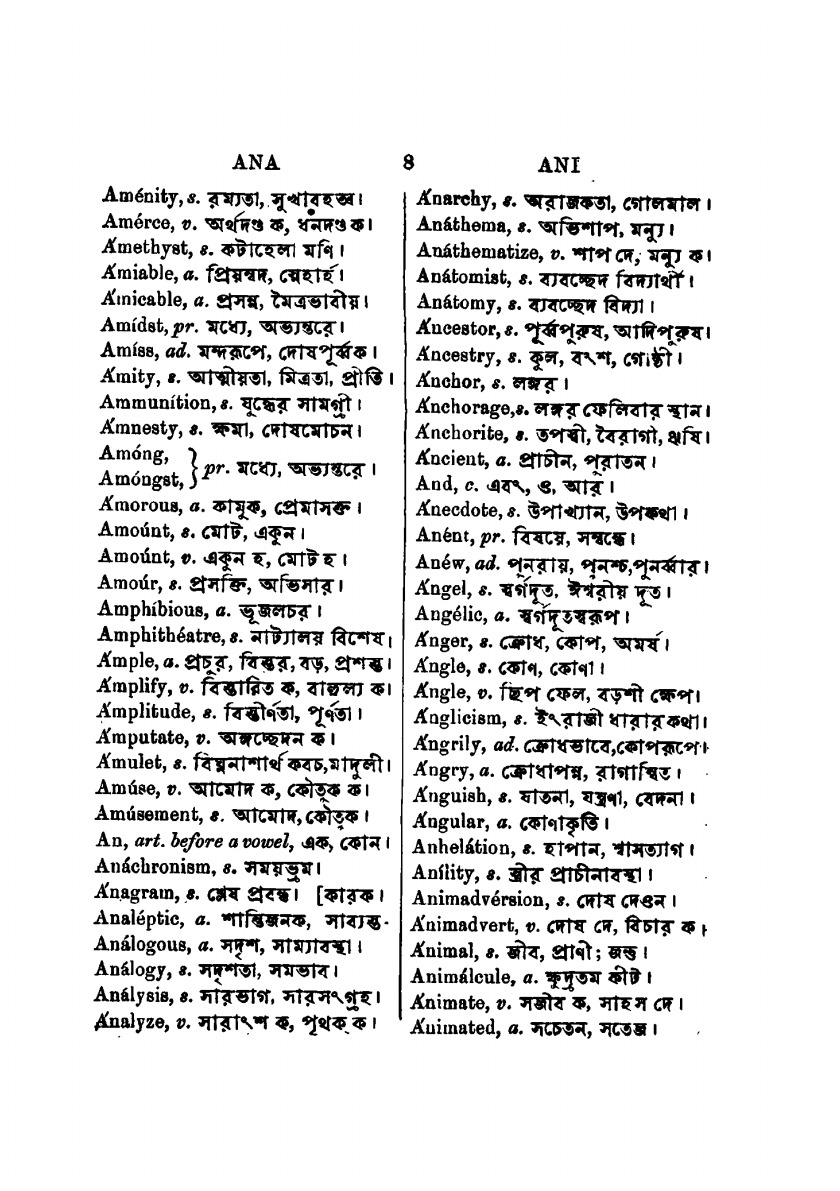 ANA 8 ANI
Aménity, s. রম্যতা, সুখাবহত্ব।
Amérce, v. অর্থদণ্ড ক, ধনদণ্ড ক।
Ámethyst, s. কটাহেলা মণি।
Ámiable, a. প্রিয়ম্বদ, স্নেহার্হ।
Ámicable, a. প্রসন্ন, মৈত্রভাবীয়।
Amídst, pr. মধ্যে, অভ্যন্তরে।
Amíss, ad. মন্দরূপে, দোষপূর্ব্বক।
Ámity, s. আত্মীয়তা, মিত্রতা, প্রীতি।
Ammunítion, s. যুদ্ধের সামগ্রী।
Ámnesty, s. ক্ষমা, দোষমোচন।
Amóng,
Amóngst, } pr. মধ্যে, অভ্যন্তরে।
Ámorous, a. কামুক, প্রেমাসক্ত।
Amoúnt, s. মোট, একুন।
Amoúnt, v. একুন হ, মোট হ।
Amoúr, s. প্রসক্তি, অভিসার।
Amphíbious, a. ভূজলচর।
Amphithéatre, s. নাট্যালয় বিশেষ।
Ámple, a. প্রচুর, বিস্তর, বড়, প্রশস্ত।
Ámplify, v. বিস্তারিত ক, বাহুল্য ক।
Ámplitude, s. বিস্তীর্ণতা, পূর্ণতা।
Ámputate, v. অঙ্গচ্ছেদন ক।
Ámulet, s. বিঘ্ননাশার্থ কবচ, মাদুলী।
Amúse, v. আমোদ ক, কৌতুক ক।
Amúsement, s. আমোদ, কৌতুক।
An, art. before a vowel, এক, কোন।
Anáchronism, s. সময়ভ্রম।
Ánagram, s. শ্লেষ প্রবন্ধ। [কারক।
Analéptic, a. শান্তিজনক, সাব্যস্ত-
Análogous, a. সদৃশ, সাম্যাবস্থা।
Análogy, s. সদৃশতা, সমভাব।
Análysis, s. সারভাগ, সারসংগ্রহ।
Ánalyze, v. সারাংশ ক, পৃথক্ ক।
Ánarchy, s. অরাজকতা, গোলমাল।
Anáthema, s. অভিশাপ, মন্যু।
Anáthematize, v. শাপ দে, মন্যু ক।
Anátomist, s. ব্যবচ্ছেদ বিদ্যার্থী।
Anátomy, s. ব্যবচ্ছেদ বিদ্যা।
Áncestor, s. পূর্ব্বপুরুষ, আদিপুরুষ।
Áncestry, s. কুল, বংশ, গোষ্ঠী।
Ánchor, s. লঙ্গর।
Ánchorage, s. লঙ্গর ফেলিবার স্থান।
Ánchorite, s. তপস্বী, বৈরাগী, ঋষি।
Áncient, a. প্রাচীন, পুরাতন।
And, c. এবং, ও, আর।
Ánecdote, s. উপাখ্যান, উপকথা।
Anént, pr. বিষয়ে, সম্বন্ধে।
Anéw, ad. পুনরায়, পুনশ্চ, পুনর্ব্বার।
Ángel, s. স্বর্গদূত, ঈশ্বরীয় দূত।
Angélic, a. স্বর্গদূতস্বরূপ।
Ánger, s. ক্রোধ, কোপ, অমর্ষ।
Ángle, s. কোণ, কোণা।
Ángle, v. ছিপ ফেল, বড়শী ক্ষেপ।
Ánglicism, s. ইংরাজী ধারার কথা।
Ángrily, ad. ক্রোধভাবে, কোপরূপে।
Ángry, a. ক্রোধাপন্ন, রাগান্বিত।
Ánguish, s. যাতনা, যন্ত্রণা, বেদনা।
Ángular, a. কোণাকৃতি।
Anhelátion, s. হাপান, শ্বাসত্যাগ।
Anílity, s. স্ত্রীর প্রাচীনাবস্থা।
Animadvérsion, s. দোষ দেওন।
Ánimadvert, v. দোষ দে, বিচার ক।
Ánimal, s. জীব, প্রাণী; জন্তু।
Animálcule, a. ক্ষুদ্রতম কীট।
Ánimate, v. সজীব ক, সাহস দে।
Ánimated, a. সচেতন, সতেজ।